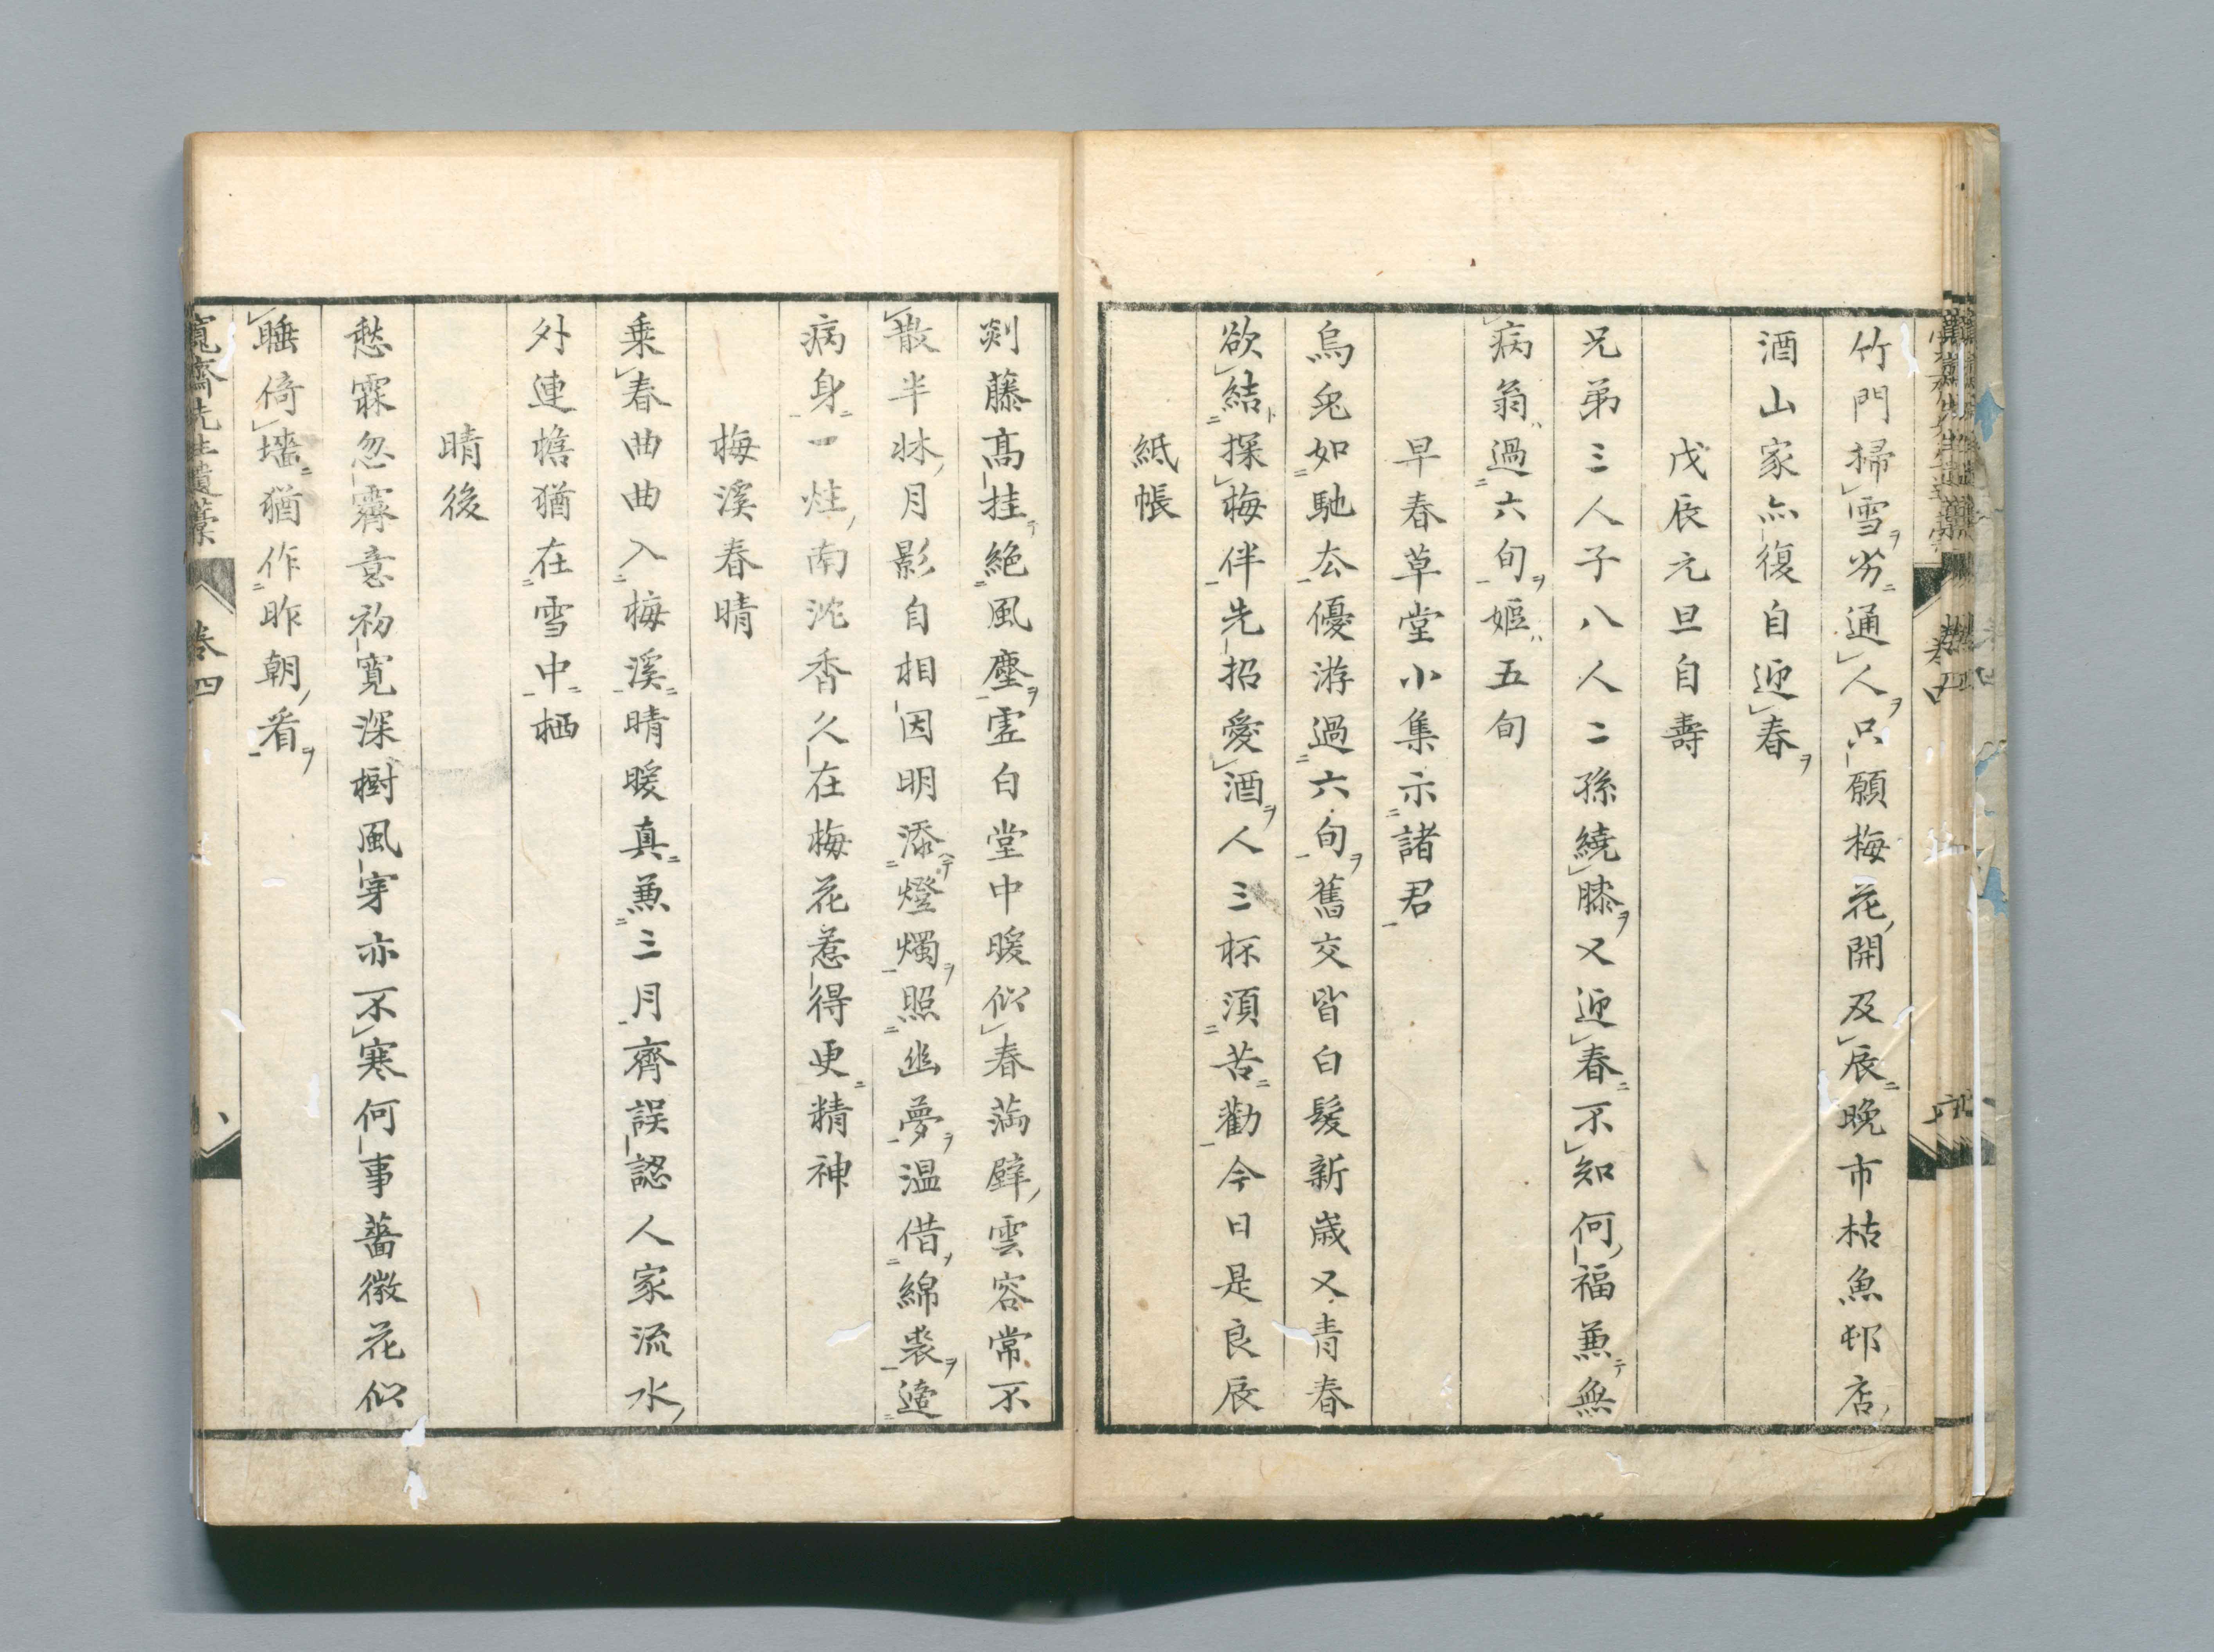 竹門掃雪劣通人只願梅花開及辰晩市枯魚邨店
酒山家亦復自迎春
戊辰元旦自壽
兄弟三人子八人二孫繞膝又迎春不知何福兼無
病翁過六旬嫗五旬
早春草堂小集示諸君
烏兔如馳厺優游過六旬舊交皆白髮新歳又青春
欲結探梅伴先招愛酒人三杯須苦勸今日是良辰
紙帳
剡藤髙挂絕風塵虛白堂中暖似春滿壁雲容常不
散半牀月影自相因明添燈燭照幽夢温借綿裘遶
病身一炷南沈香久在梅花惹得更精神
梅溪春晴
乗春曲曲入梅溪晴暖真兼三月齊誤認人家流水
外連檐猶在雪中栖
晴後
愁霖忽霽意初寬深樹風穿亦不寒何事薔薇花似
睡倚墻猶作昨朝看
寬齋先生遺藁 卷四